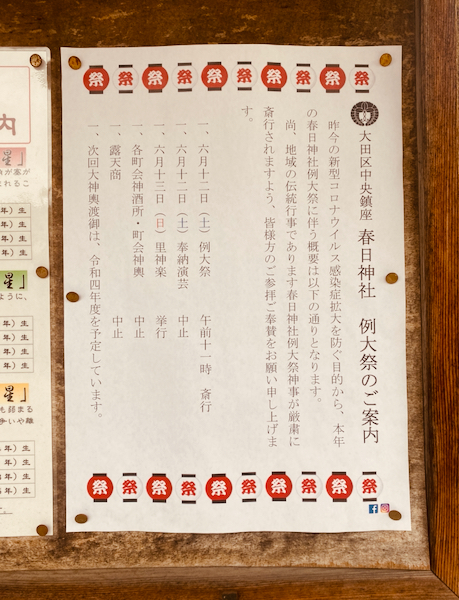 祭 祭 祭 祭 祭 祭 祭 祭 祭 祭
大田区中央鎮座 春日神社 例大祭のご案内
昨今の新型コロナウイルス感染症拡大を防ぐ目的から、本年
の春日神社例大祭に伴う概要は以下の通りとなります。
尚、地域の伝統行事であります春日神社例大祭神事が厳粛に
斎行されますよう、皆様方のご参拝ご奉賛をお願い申し上げま
す。
一、六月十二日(土)例大祭 午前十一時 斎行
一、六月十二日(土)奉納演芸 中止
一、六月十三日(日)里神楽 挙行
一、各町会神酒所・町会神輿 中止
一、露天商 中止
一、次回大神輿渡御は、令和四年度を予定しています。
祭 祭 祭 祭 祭 祭 祭 祭 祭 祭
内
星」
れるこ
年)生
年)生
年)生
星」
ように、
年)生
年)生
年)生
星」
も弱まる
年)生
年)生
年)生